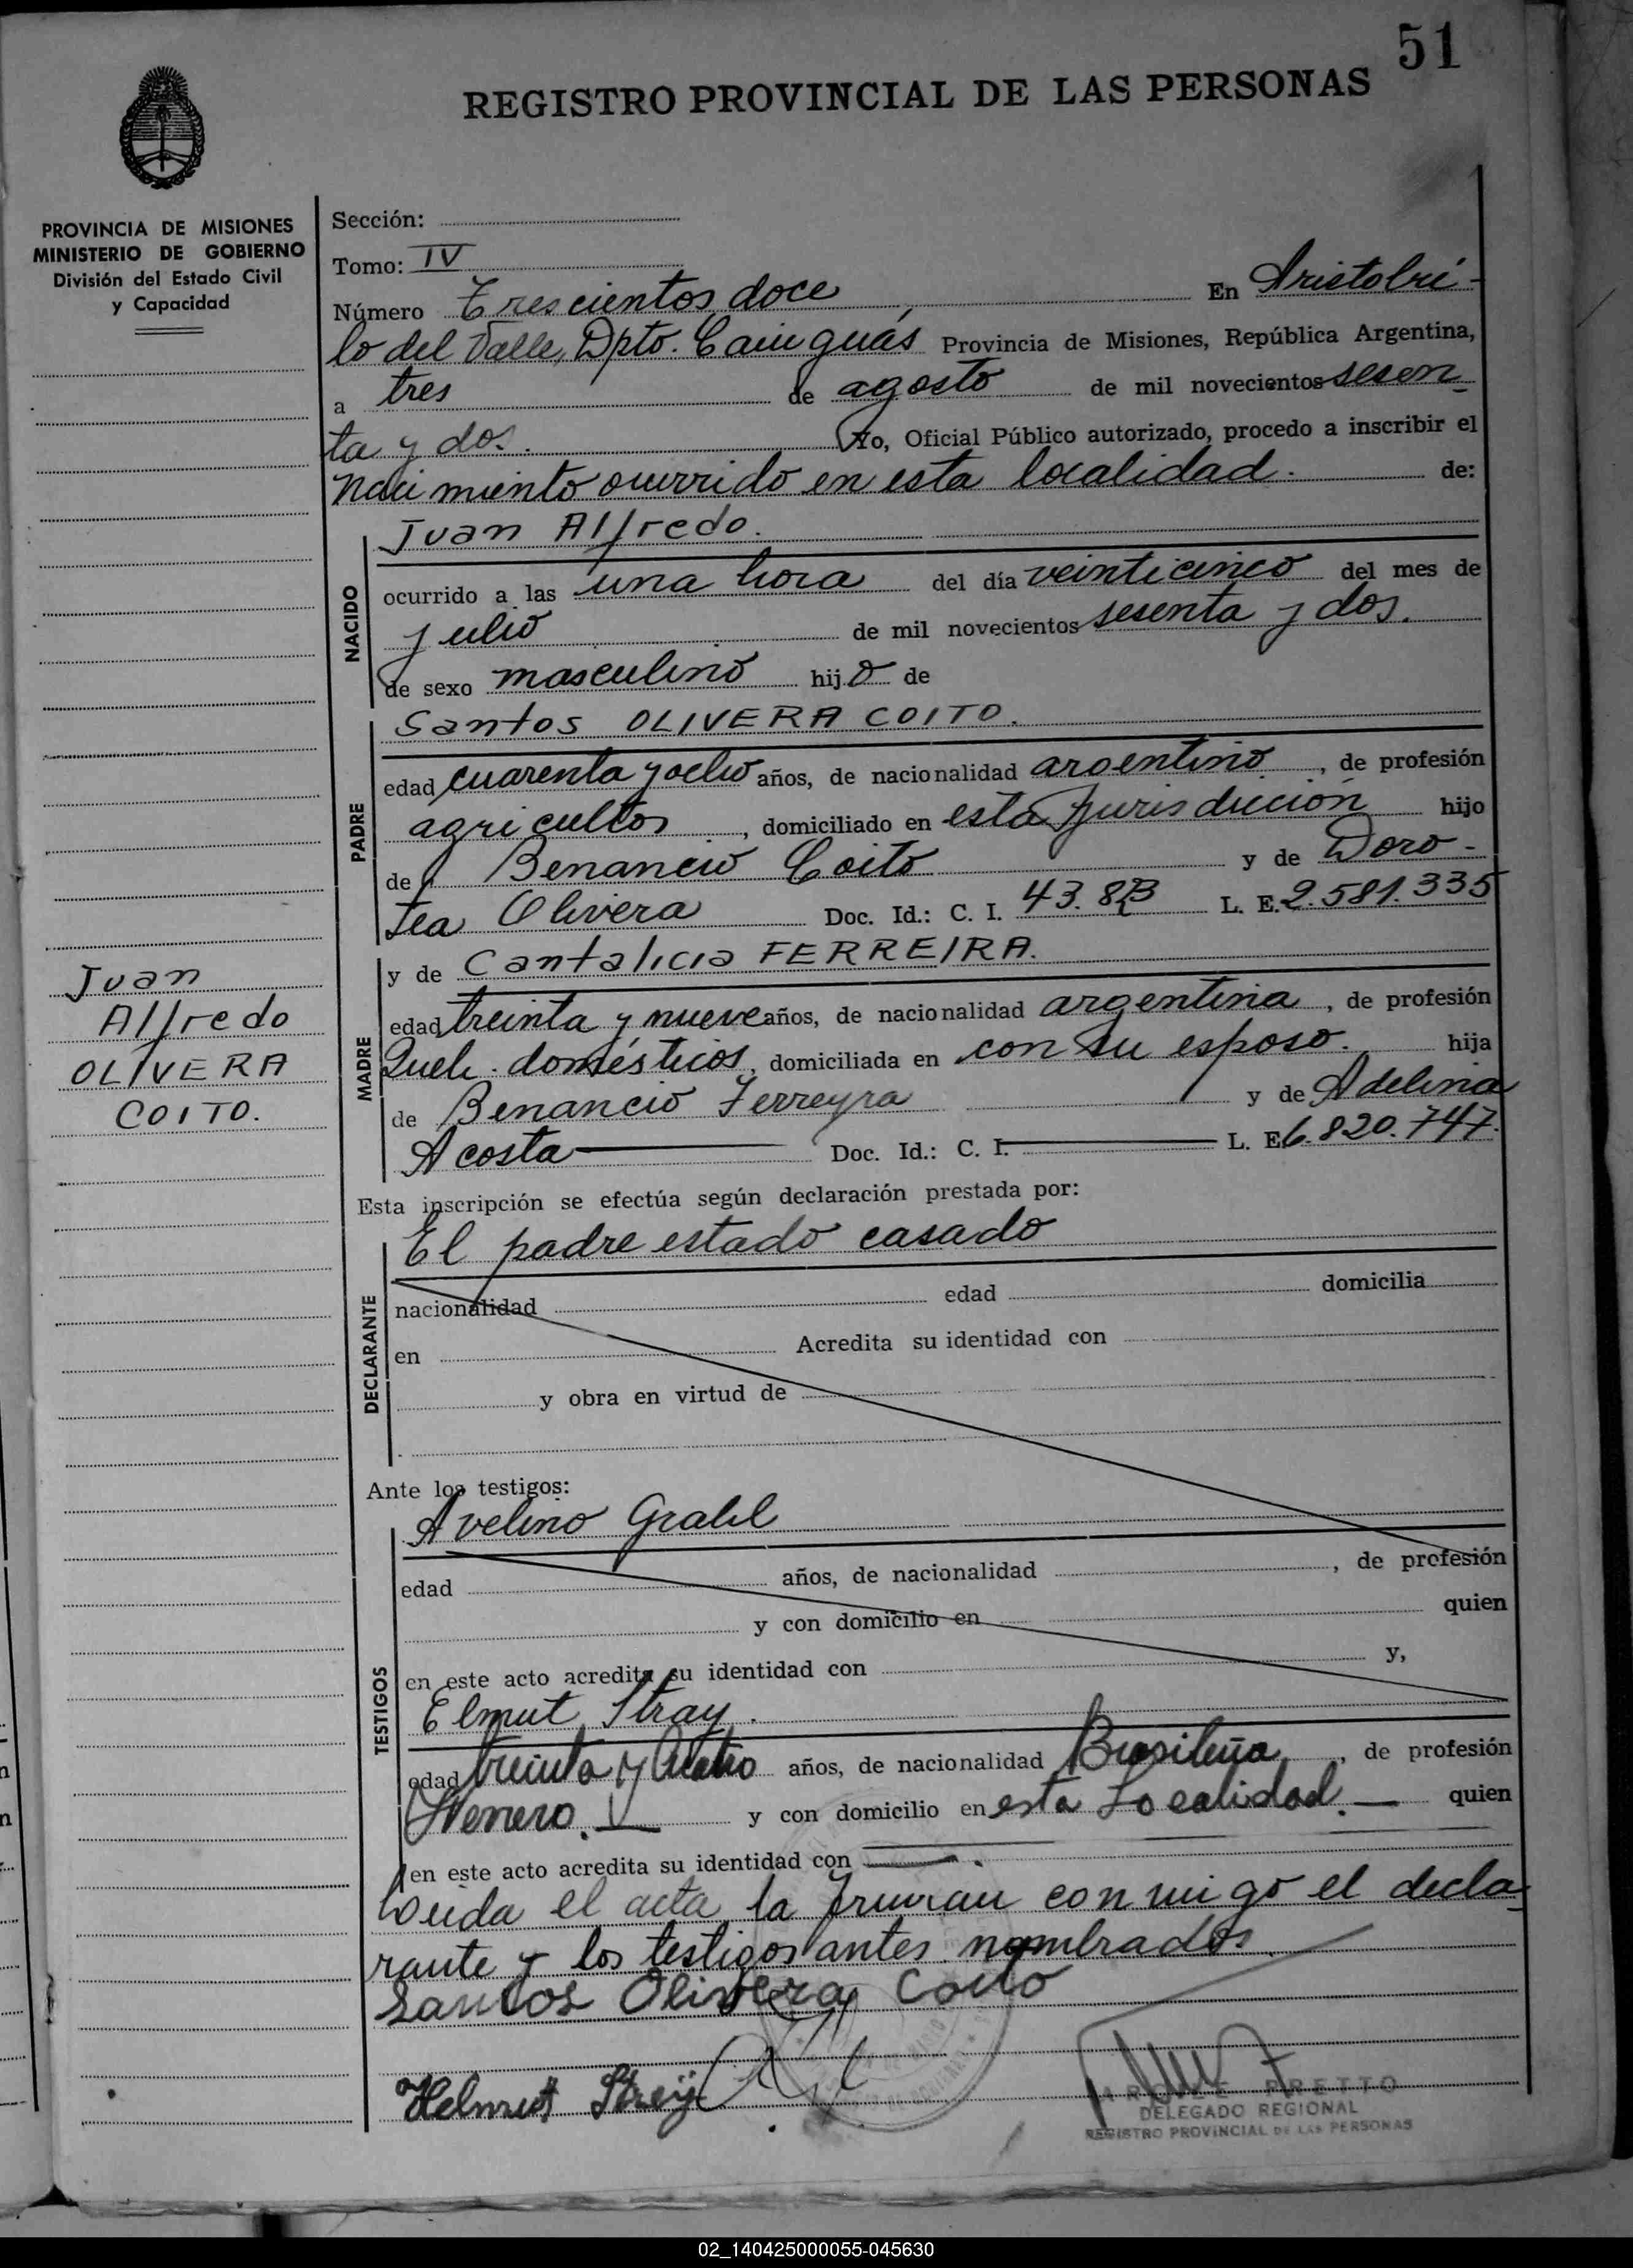 51
REGISTRO PROVINCIAL DE LAS PERSONAS
PROVINCIA DE MISIONES
MINISTERIO DE GOBIERNO
División del Estado Civil
y Capacidad
Sección:
Tomo: IV
Número Trescientos doce En Aristobú-
lo del Valle, Dpto. Cainguás Provincia de Misiones, República Argentina,
a tres de agosto de mil novecientos sesen_
ta y dos. Yo, Oficial Público autorizado, procedo a inscribir el
Nacimiento ocurrido en esta localidad. de:
NACIDO
Juan Alfredo.
ocurrido a las una hora del día veinticinco del mes de
julio de mil novecientos sesenta y dos.
de sexo masculino hijo de
PADRE
Santos OLIVERA COITO.
edad cuarenta y ocho años, de nacionalidad argentino, de profesión
agricultor, domiciliado en esta Jurisdicción hijo
de Benancio Coito y de Doro-
tea Olivera Doc. Id.: C. I. 43.8 L. E. 2.581.335
Juan
Alfredo
OLIVERA
COITO.
MADRE
y de Cantalicia FERREIRA.
edad treinta y nueve años, de nacionalidad argentina, de profesión
Queh. domésticos, domiciliada en con su esposo. hija
de Benancio Ferreyra y de Adelina
Acosta Doc. Id.: C. I. L. E. 6.820.747.
Esta inscripción se efectúa según declaración prestada por:
DECLARANTE
El padre estado casado
nacionalidad edad domicilia
en Acredita su identidad con
y obra en virtud de
Ante los testigos:
TESTIGOS
Avelino Grahl
edad años, de nacionalidad, de profesión
y con domicilio en quien
en este acto acredita su identidad con y,
Elmut Stray.
edad treinta y Cuatro años, de nacionalidad Brasileña, de profesión
Herrero. y con domicilio en esta Localidad. quien
en este acto acredita su identidad con
Leida el acta la firman conmigo el decla_
rante y los testigos antes nombrados
Santos Olivera Coito
Helmut
PRETTO
DELEGADO REGIONAL
REGISTRO PROVINCIAL DE LAS PERSONAS
02_140425000055-045630